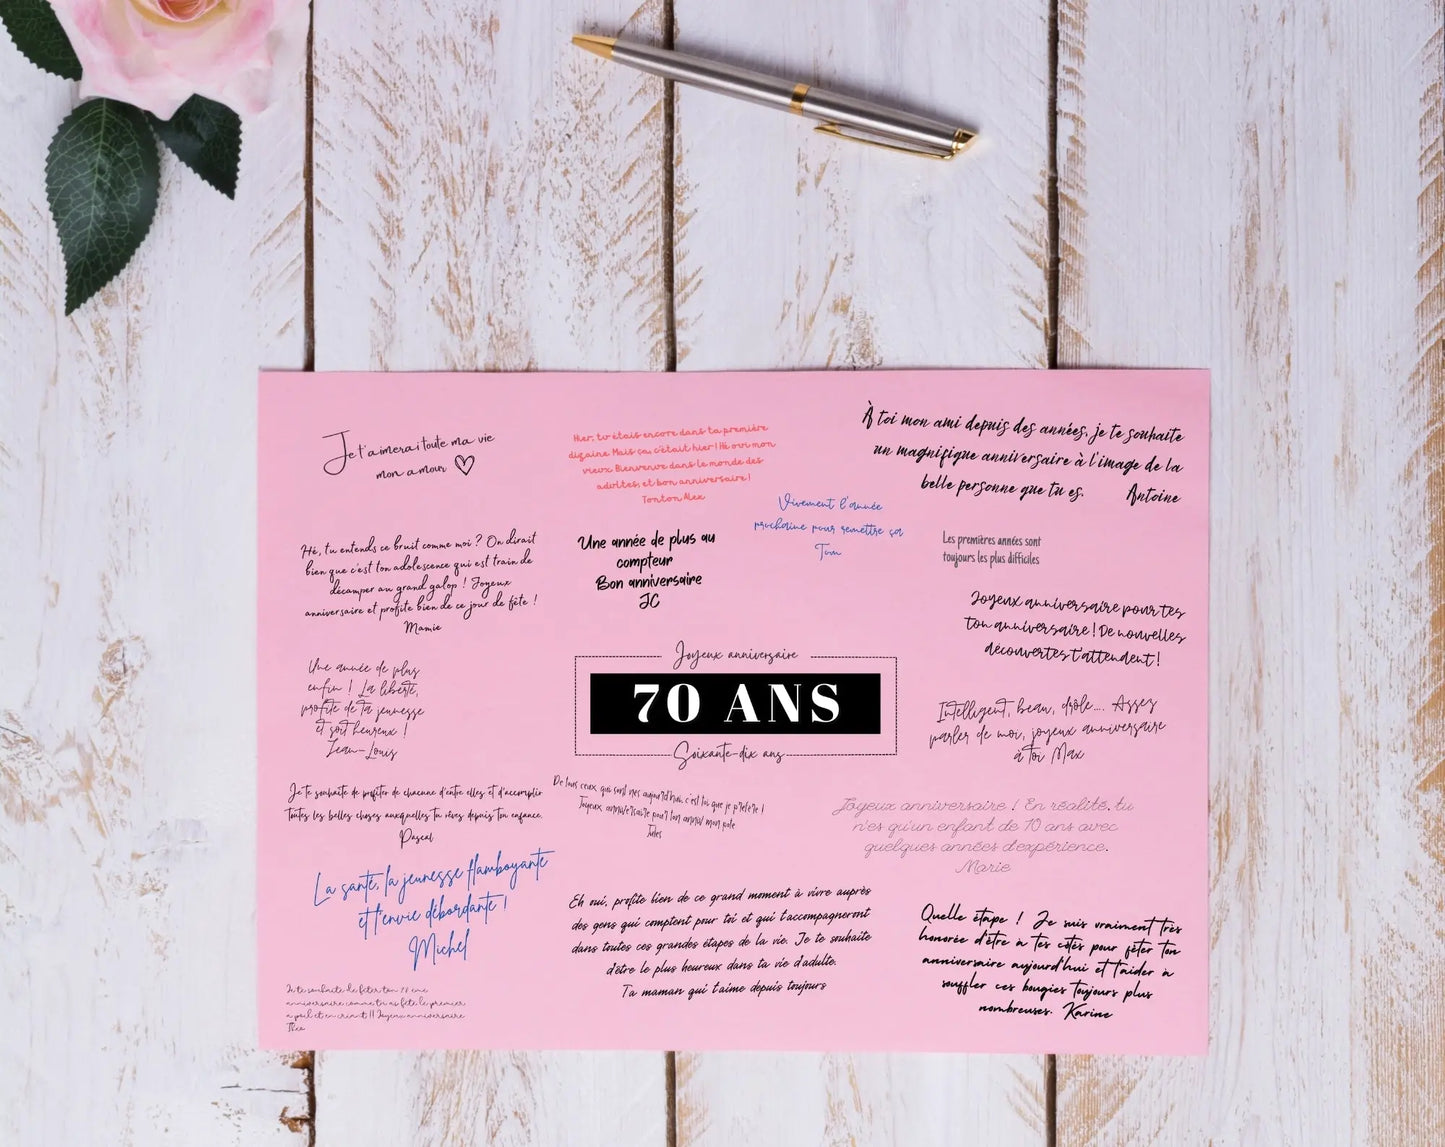 Je t'aimerai toute ma vie
mon amour
Hier, tu étais encore dans ta première
dizaine. Mais ça, c'était hier ! Hé oui mon
vieux. Bienvenue dans le monde des
adultes, et bon anniversaire !
Tonton Alex
À toi mon ami depuis des années, je te souhaite
un magnifique anniversaire à l'image de la
belle personne que tu es. Antoine
Vivement l'année
prochaine pour remettre ça
Tom
Hé, tu entends ce bruit comme moi ? On dirait
bien que c'est ton adolescence qui est train de
décamper au grand galop ! Joyeux
anniversaire et profite bien de ce jour de fête !
Mamie
Une année de plus au
compteur
Bon anniversaire
JC
Les premières années sont
toujours les plus difficiles
Joyeux anniversaire pour tes
ton anniversaire ! De nouvelles
découvertes t'attendent !
Une année de plus
enfin ! La liberté,
profite de ta jeunesse
et soit heureux !
Jean-Louis
Joyeux anniversaire
70 ANS
Soixante-dix ans
Intelligent, beau, drôle.... Assez
parler de moi, joyeux anniversaire
à toi Max
Je te souhaite de profiter de chacune d'entre elles et d'accomplir
toutes les belles choses auxquelles tu rêves depuis ton enfance.
Pascal
De tous ceux qui sont nés aujourd'hui, c'est toi que je préfère !
Joyeux anniversaire pour ton anniv mon pote
Jules
Joyeux anniversaire ! En réalité, tu
n'es qu'un enfant de 10 ans avec
quelques années d'expérience.
Marie
La santé, la jeunesse flamboyante
et l'envie débordante !
Michel
Eh oui, profite bien de ce grand moment à vivre auprès
des gens qui comptent pour toi et qui t'accompagneront
dans toutes ces grandes étapes de la vie. Je te souhaite
d'être le plus heureux dans ta vie d'adulte.
Ta maman qui t'aime depuis toujours
Quelle étape ! Je suis vraiment très
honorée d'être à tes côtés pour fêter ton
anniversaire aujourd'hui et t'aider à
souffler ces bougies toujours plus
nombreuses. Karine
Je te souhaite de fêter ton ème
anniversaire comme tu as fêté le premier
à poil et en criant !! Joyeux anniversaire
Théo